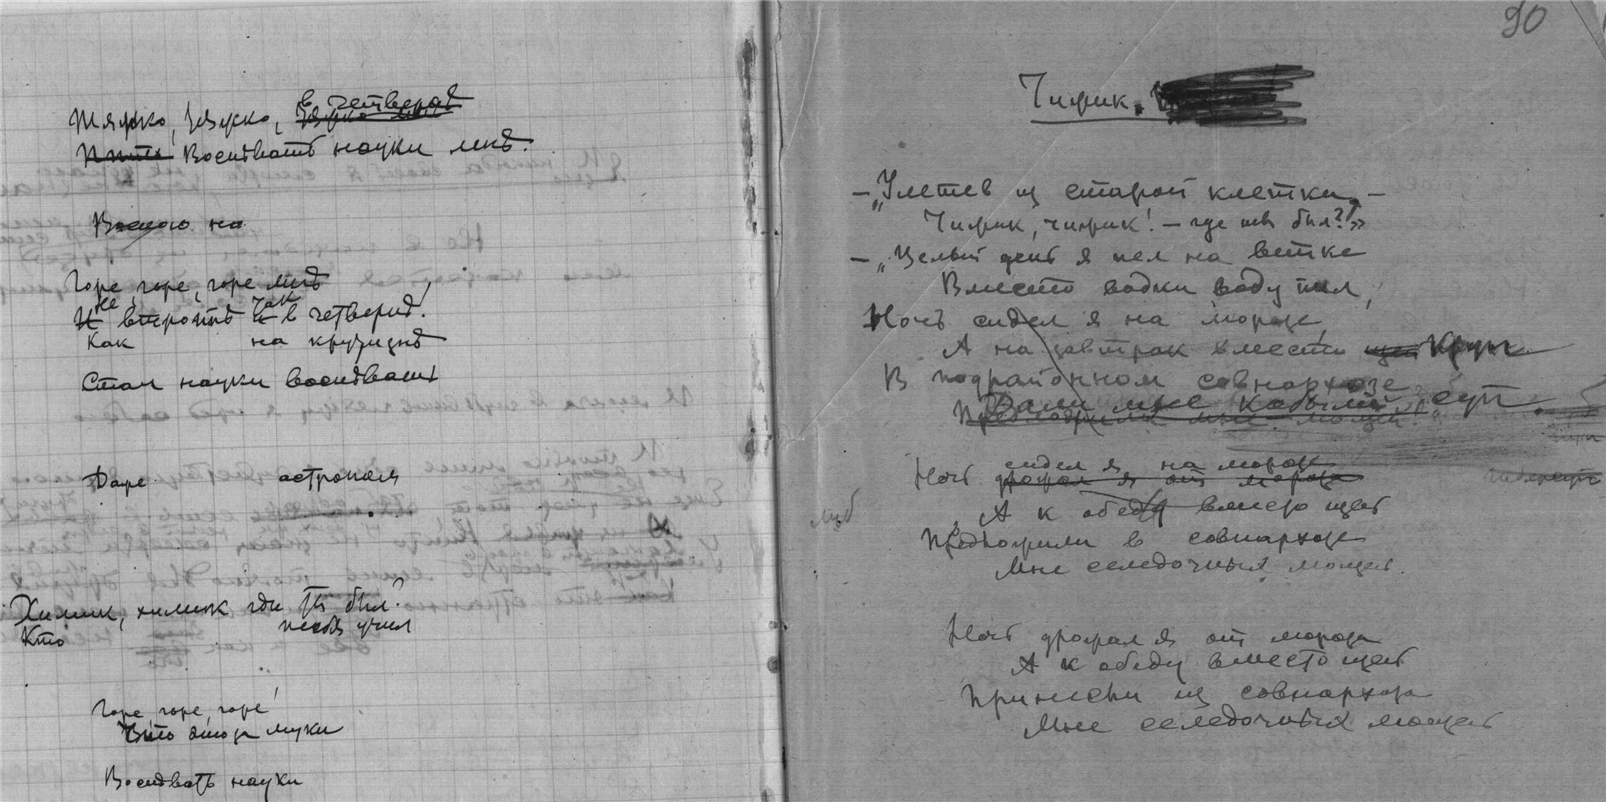 Тяжко, тяжко, в четверг
Воспевать науки мне.
Воспою на
Горе, горе, горе мне
Не втройне так в четверне!
Как на кружизне
Стал науки воспевать
Даже астроном
Химик, химик где ты был?
Кто тебя учил
Горе, горе, горе!
Что это за муки
Воспевать науки
90
Чижик.
— „Улетев из старой клетки, —
Чижик, чижик! — где ты был?"
— „Целый день я пел на ветке
Вместо водки воду пил,
Ночь сидел я на морозе,
А на завтрак вместо щей круп
В подрайонном совнархозе
Дали мне кобылий суп.
Предложили мне мощей
Ночь сидел я на морозе
дрожал я от мороза
А к обеду вместо щей
Предложили в совнархозе
Мне селедочных мощей.
Ночь дрожал я от мороза
А к обеду вместо щей
Принесли из совнархоза
Мне селедочных мощей